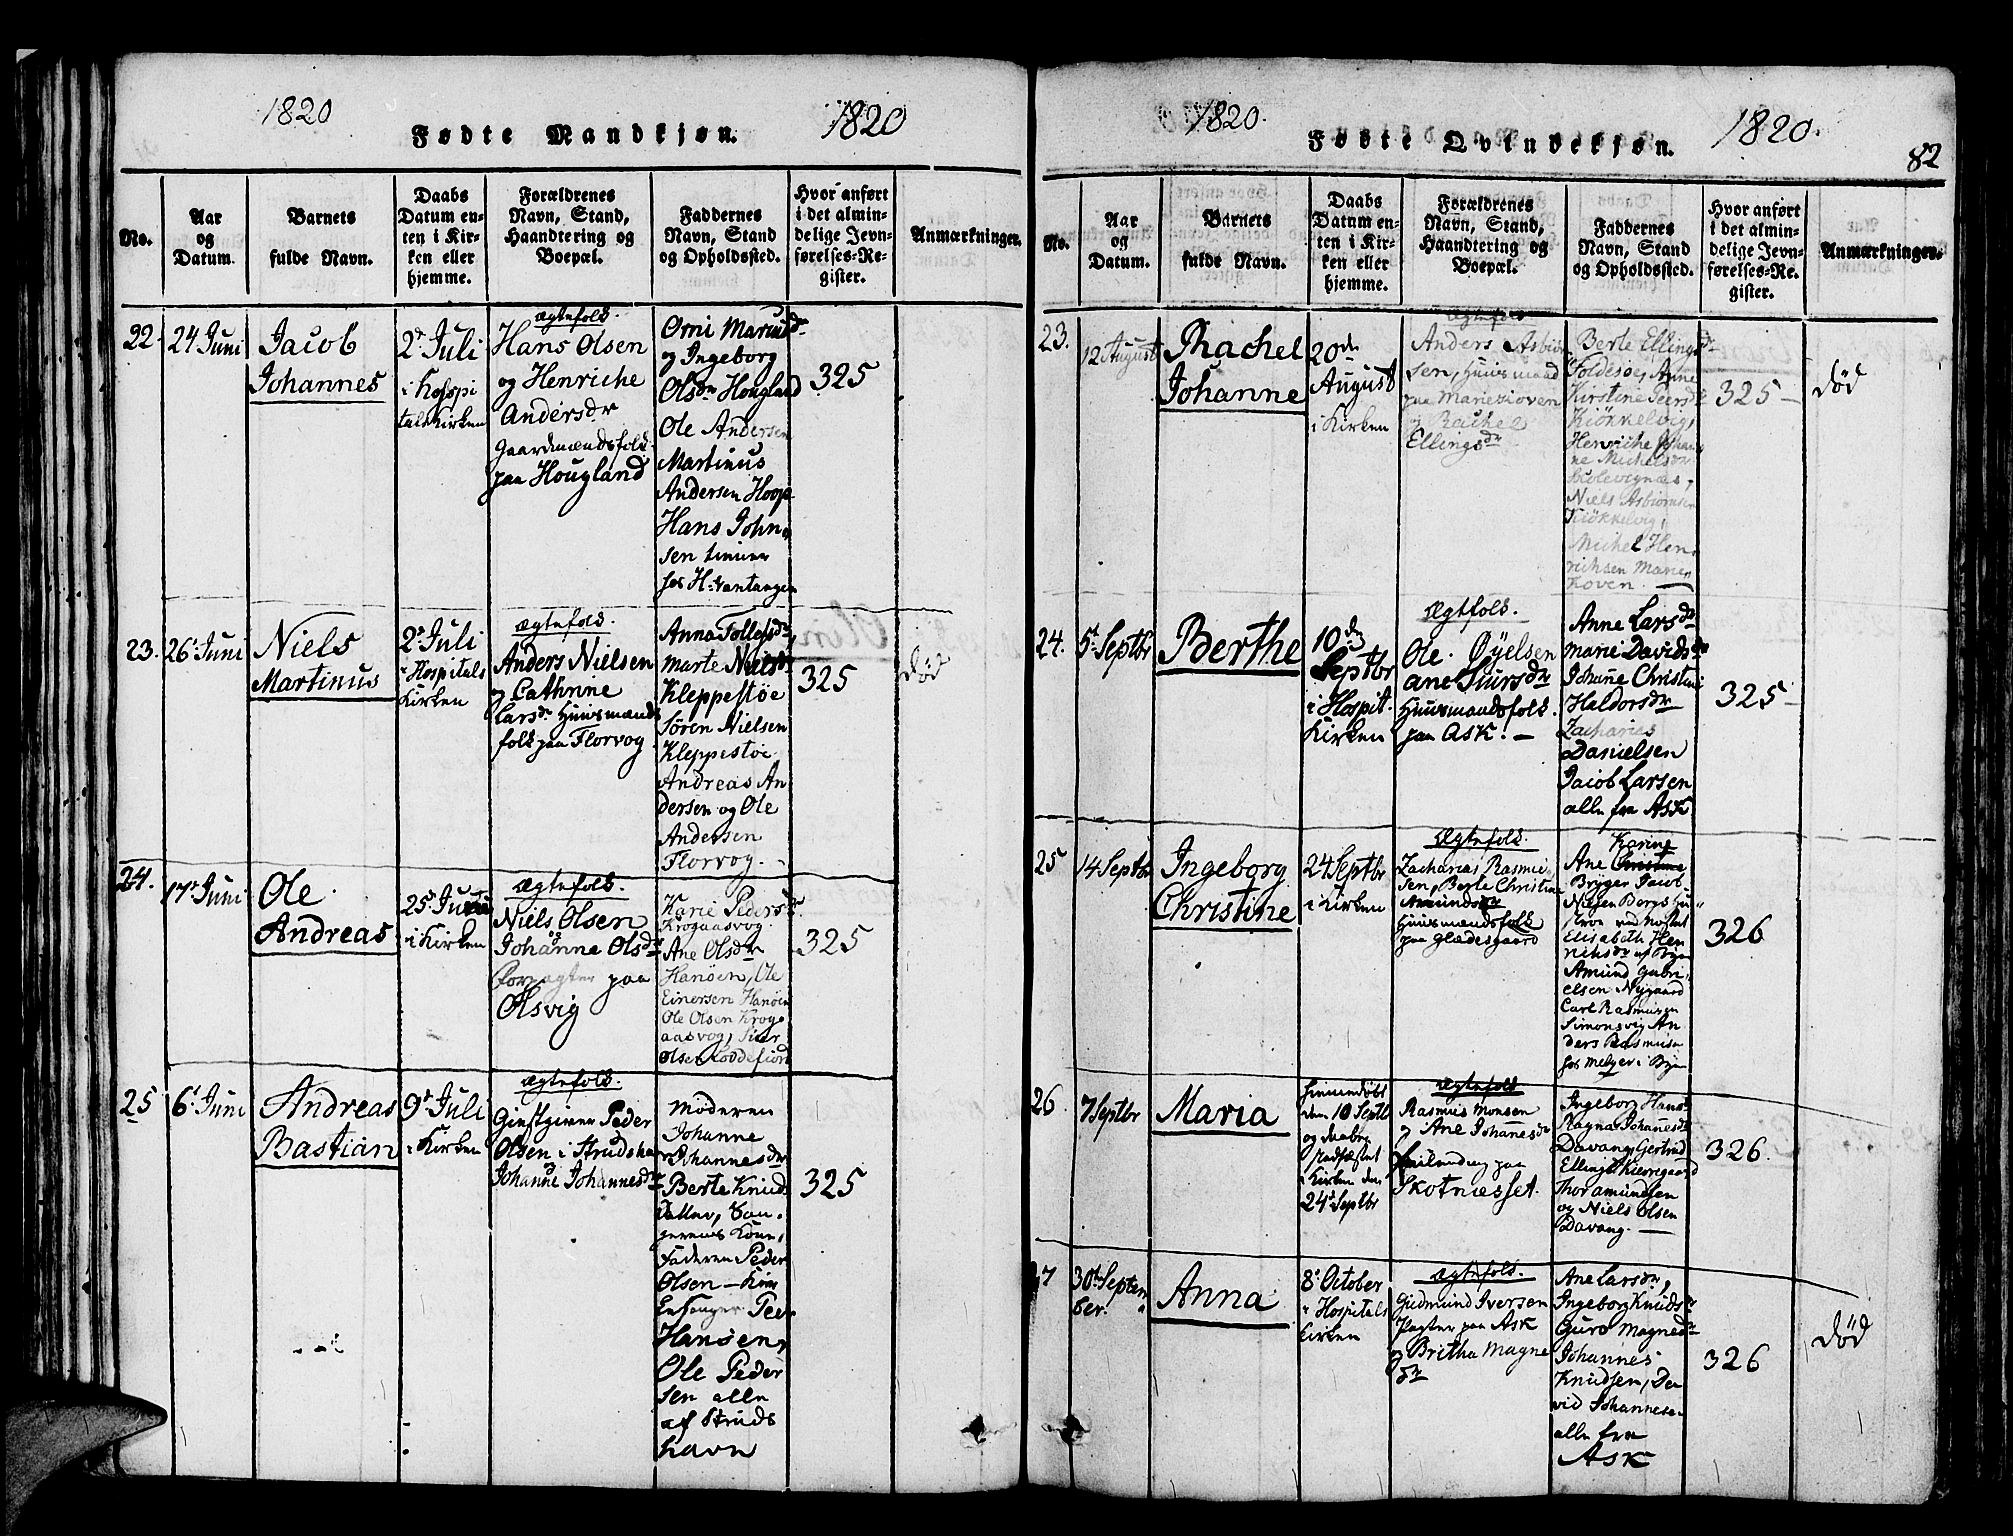 1820
Fødte Mandkjøn.
1820
No.
Aar
og
Datum.
Barnets
fulde Navn.
Daabs
Datum en-
ten i Kir-
ken eller
hjemme.
Forældrenes
Navn, Stand,
Haandtering og
Boepæl.
Faddernes
Navn, Stand
og Opholdssted.
Hvor anført
i det almin-
delige Jevn-
førelses-Re-
gister.
Anmærkninger.
22.
24 Juni
Jacob
Johannes
2d Juli
i Hospi
talsKirken
Ægtefolk.
Hans Olsen
og Henriche
Andersdr
Gaardmændsfolk
paa Hougland
Orni Mariusd.
og Ingeborg
Olsdr Hougland
Ole Andersen
Martinus
Andersen Hoop
Hans John
sen tiener
hos
325
23.
26 Juni
Niels
Martinus
2d Juli
i Hospitals
Kirken
Ægtefolk.
Anders Nielsen
og Cathrine
Larsdr Huusmænds
folk paa Florvog
Anna Tollefsdr
Marte Nielsdr
Kleppestøe
Søren Nielsen
Kleppestøe
Andreas An
dersen og Ole
Andersen
Florvog.
325
død
24.
17 Juni
Ole
Andreas
25d
i Kirken
Ægtefolk.
Niels Olsen
og
Johanne Olsdr
Forpagter paa
Olsvig
Karie Pedersdr
Krogaasvog
Ane Olsdr
Hanøen, Ole
Einersen Hanøen
Ole Olsen Krog
aasvog, Siur
Olsen Loddefiord
325
25
6 Juni
Andreas
Bastian
9d Juli
i Kirken
Ægtefolk.
Giestgiver Peder
Olsen i Strudshavn
og
Johanne Johannesdr
Moderen
Johanne
Johannesdr
Berte Knuds
Faderen Peder
Olsen
Hansen,
Ole Peder
sen alle
af Struds
havn
325
1820.
Fødte Qvindekjøn.
1820.
82
No.
Aar
og
Datum.
Barnets
fulde Navn.
Daabs
Datum en-
ten i Kir-
ken eller
hjemme.
Forældrenes
Navn, Stand,
Haandtering og
Boepæl.
Faddernes
Navn, Stand
og Opholdssted.
Hvor anført
i det almin-
delige Jevn-
førelses-Re-
gister.
Anmærkninger.
23.
12 August
Rachel
Johanne
20de
August
i Kirken
Ægtefolk
Anders Asbiørn
sen, Huusmand
paa Marieskoven
og Rachel
Ellingsdr
Berte Ellingsdr
Foldesøe, Anne
Kirstine Peersdr
Kiøkkelvig,
Henriche Johan
ne Michelsdr
Skolevignæs,
Niels Asbiørnsen
Kiøkkelvig,
Michel Hen
richsen Marie
skoven
325
død
24.
5 Septbr
Berthe
10de
Septbr
i Hospit.
Kirken
Ægtfolk.
Ole Øyelsen
Ane Siursdr
Huusmandsfolk
paa Ask.
Anne Larsdr
Marie Davidsdr
Johane Christine
Haldorsdr
Zacharies
Danielsen
Jacob Larsen
alle fra Ask
325
25
14 Septbr
Ingeborg
Christine
24 Septbr
i Kirken
Ægtefolk.
Zacharias Rasmu
sen, Berte Christine
Amundsdr
Huusmændsfolk
paa Glædesgaard
Karine
Ane Christine
Bryger Jacob
Nielsen Bergs Hu
stroe ved Nøstet
Elisabeth Hen
richsdr af Byen
Amund Gabri
elsen Nygaard
Carl Rasmusen
Simonsvig An
ders Rasmusen
hos Melzer i Byen
326
26
7 Septbr
Maria
Hiemmedøbt
den 10 Septbr
og daaben
stadfæstet
i Kirken den
24 Septbr
Ægtefolk
Rasmus Monsen
og Ane Johanesdr
paa
Skotnæsset.
Ingeborg Hansdr
Ragna Johanesdr
Davang, Gertrud
Ellingsdr Kierregaard
Thor Amundsen
og Niels Olsen
Davang.
326.
27
30te Septem
ber
Anna
8 October
i Hospitals
Kirken
Ægtefolk.
Gudmund Iversen
Pagter paa Ask
og Britha Magne
dr
Ane Larsdr,
Ingeborg Knudsdr
Guro Magnedr
Johannes
Knudsen, Da
vid Johannesen
alle fra
Ask
326
død